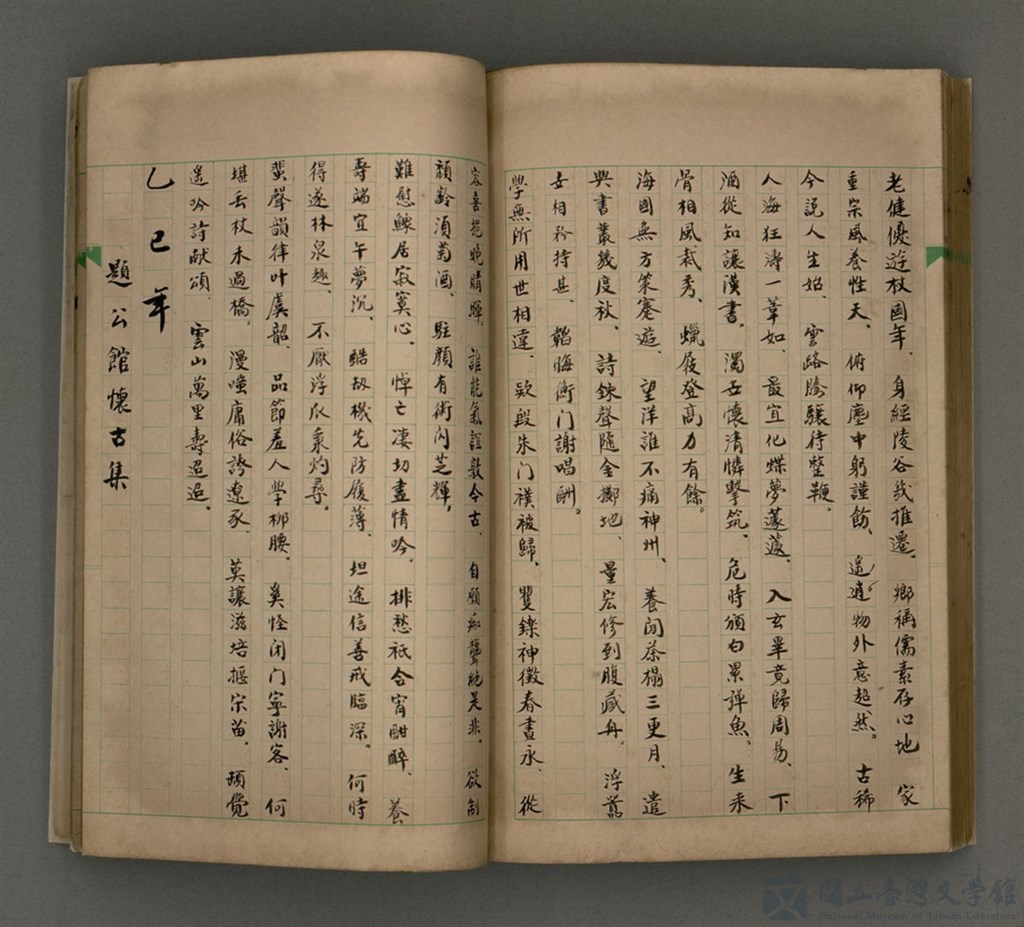 老健優遊杖國年、身經陵谷幾推遷、鄉稱儒素存心地 家
重宗風養性天、俯仰塵中躬謹飭、遙遺物外意超然。古稀
今說人生始、雲路騰驤待整鞭、
人海狂濤一葦如、最宜化蝶夢蘧蘧、入玄畢竟歸周易、下
酒從知讓漢書、濁世懷清憐擊筑、危時頒白累譚魚、生來
骨相風裁秀、蠟屐登高力有餘。
海國無方策蹇遊、望洋誰不痛神州、養閒茶榻三更月、遣
興書叢幾度秋、詩鍊聲隨金擲地、量宏修到腹藏舟、浮
世相矜持甚、韜晦衡門謝唱酬。
學無所用世相違、欵段朱门襆被歸、矍鑠神徵春晝永、從
容喜挹晚晴暉、誰能氣誼敦今古、自願痴聾絕是非、欲制
頹齡須菊酒、駐顏有術閃芝輝。
難慰鰥居寂寞心、悼亡淒切盡情吟、排愁祇合甯酣醉、養
壽端宜午夢沉、黠敌機先防履薄、坦途信善戒臨深。何時
得遂林泉趣、不厭浮瓜永灼尋。
蜚聲韻律叶虞韶、品節羞人學柳腰、莫怪闭门寧謝客、何
堪丢杖未過橋、漫嗤庸俗誇遼豕、莫讓滋培揠宋苗、頓覺
遙吟詩献頌、雲山萬里壽迢迢、
乙巳年
題公館懷古集
國立臺灣文學館
National Museum of Taiwan Literature